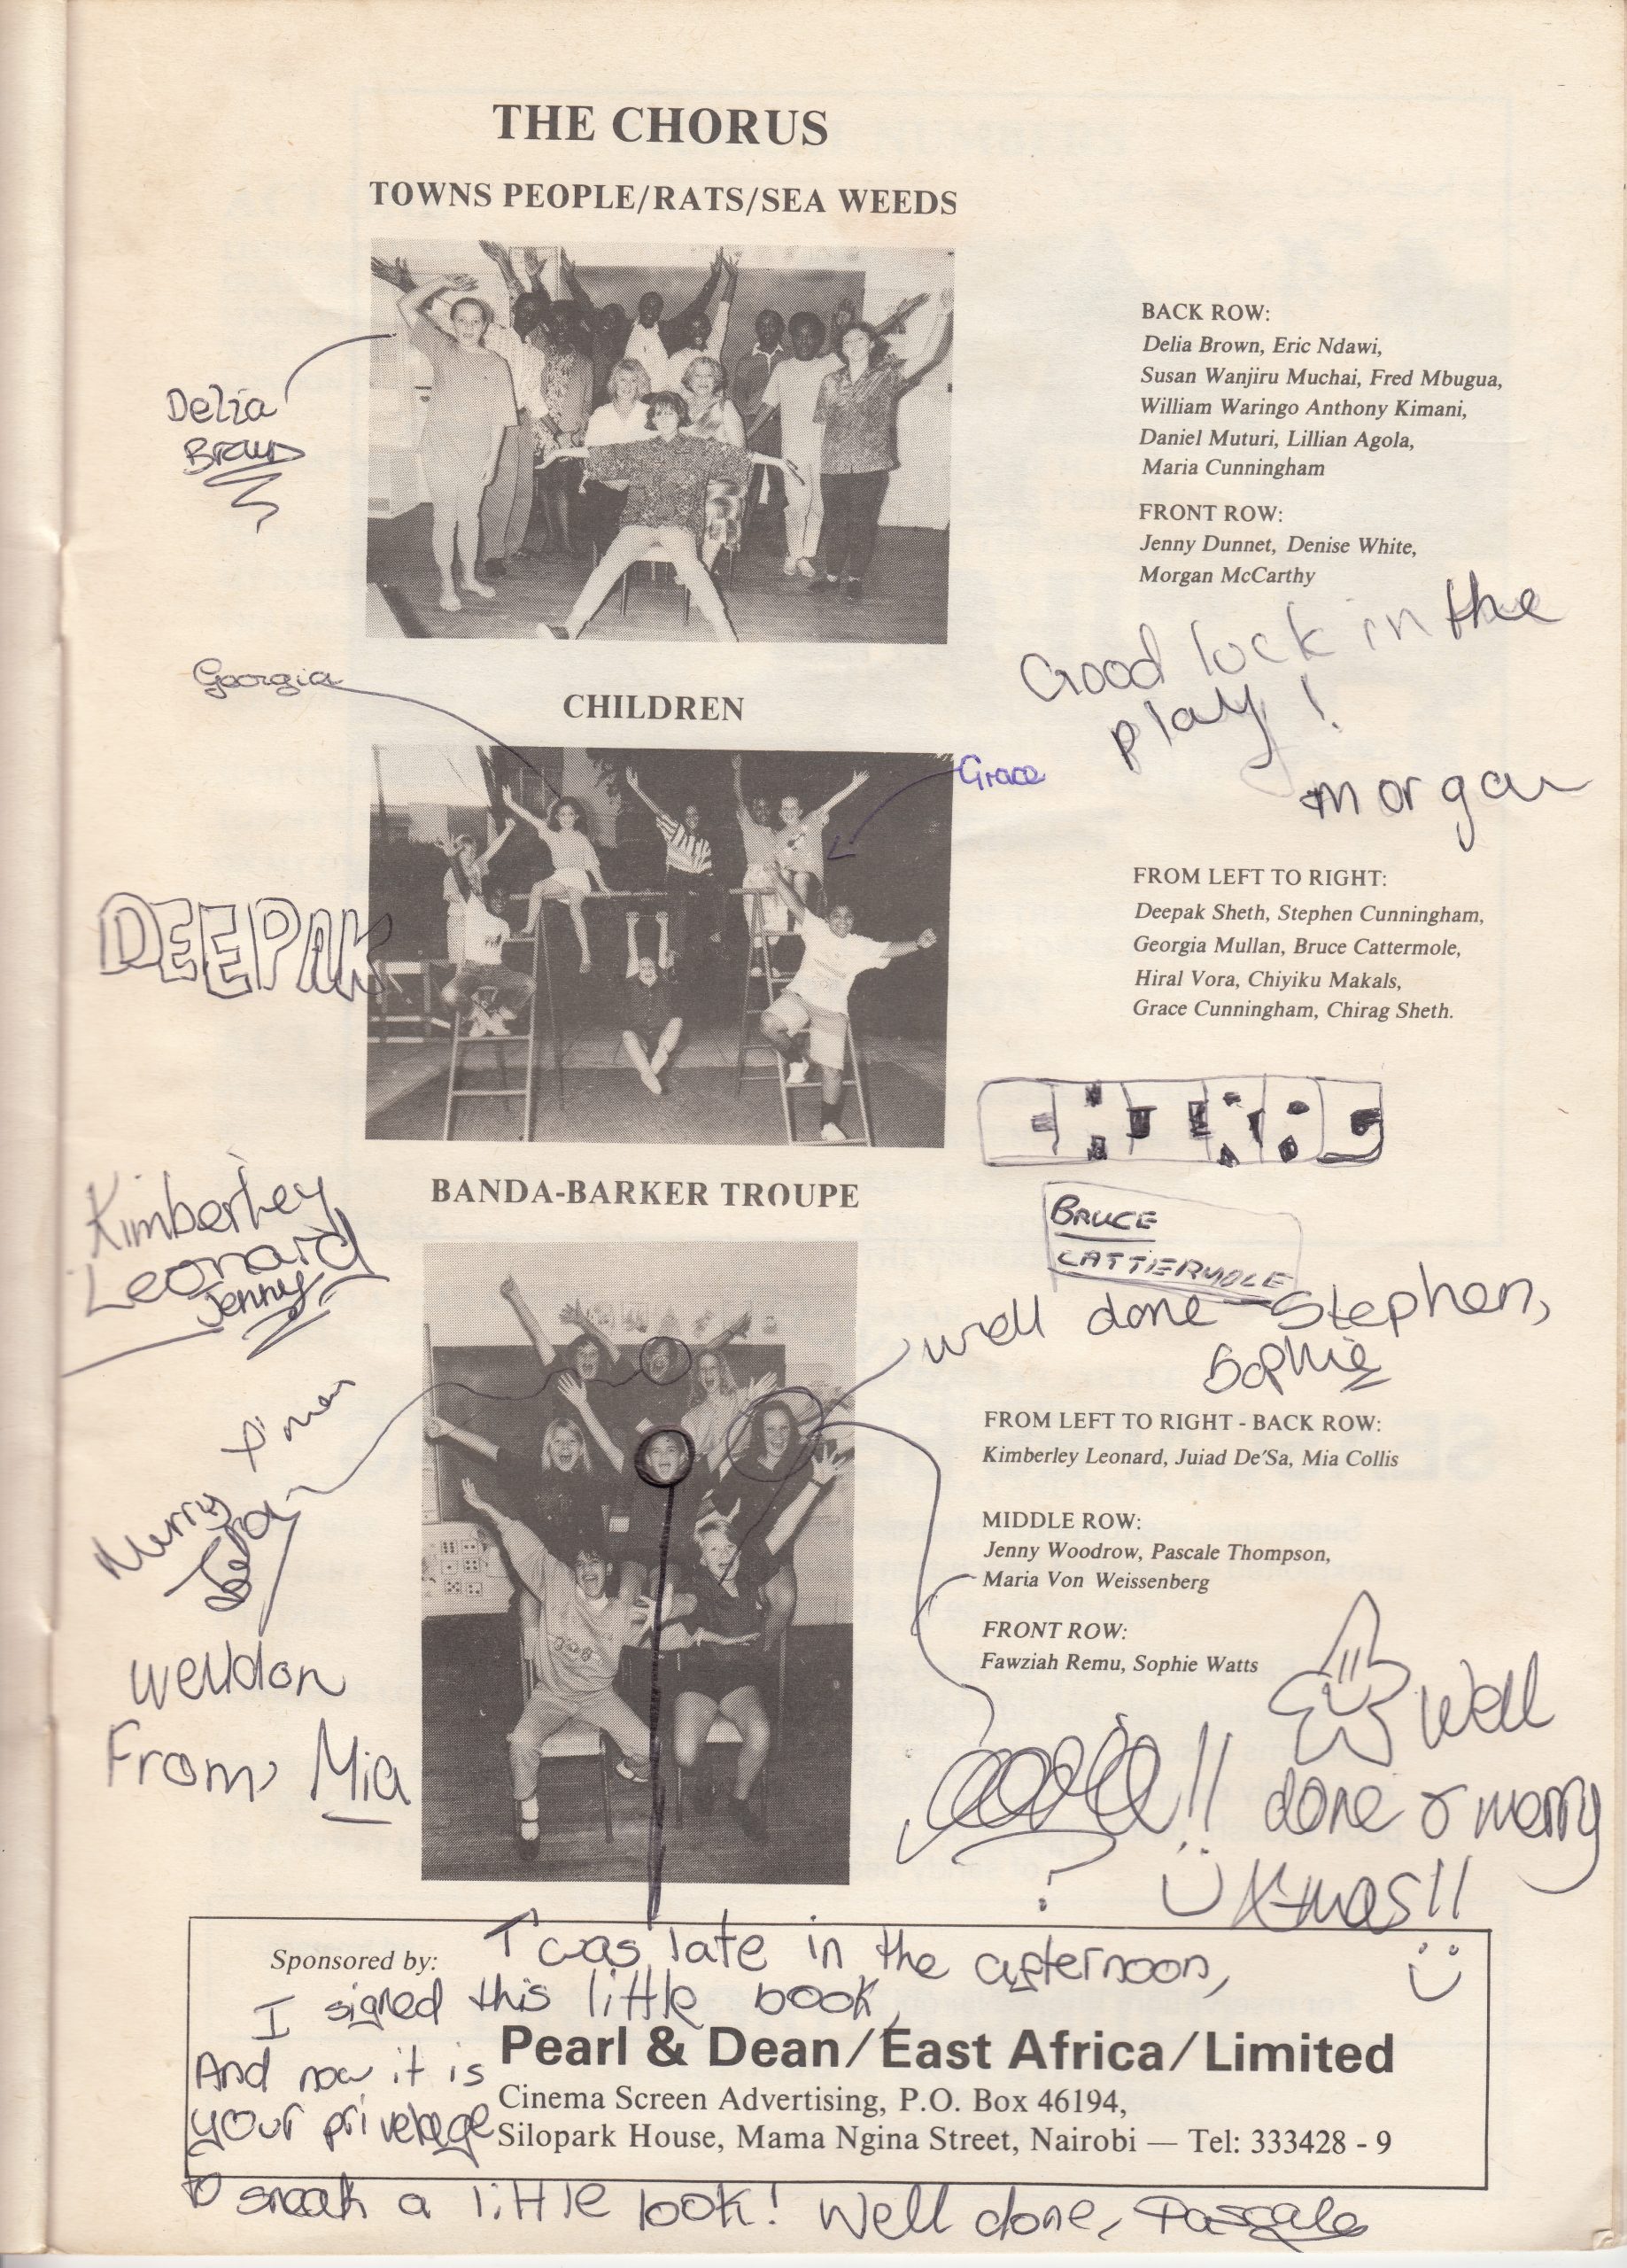 THE CHORUS
TOWNS PEOPLE/RATS/SEA WEEDS
Delia
Brown
BACK ROW:
Delia Brown, Eric Ndawi,
Susan Wanjiru Muchai, Fred Mbugua,
William Waringo Anthony Kimani,
Daniel Muturi, Lillian Agola,
Maria Cunningham
FRONT ROW:
Jenny Dunnet, Denise White,
Morgan McCarthy
Good lock in the
play!
morgan
Georgia
CHILDREN
Grace
DEEPAK
FROM LEFT TO RIGHT:
Deepak Sheth, Stephen Cunningham,
Georgia Mullan, Bruce Cattermole,
Hiral Vora, Chiyiku Makals,
Grace Cunningham, Chirag Sheth.
CHIRAG
BRUCE
CATTERMOLE
BANDA-BARKER TROUPE
Kimberley
Leonard
Jenny
well done Stephen,
Sophie
Merry X'mas
FROM LEFT TO RIGHT - BACK ROW:
Kimberley Leonard, Juiad De'Sa, Mia Collis
MIDDLE ROW:
Jenny Woodrow, Pascale Thompson,
Maria Von Weissenberg
FRONT ROW:
Fawziah Remu, Sophie Watts
Welldon
From, Mia
Well
done & merry
X-mas!!
T'was late in the afternoon,
Sponsored by:
I signed this little book,
Pearl & Dean/East Africa/Limited
And now it is
Cinema Screen Advertising, P.O. Box 46194,
your privelege
Silopark House, Mama Ngina Street, Nairobi — Tel: 333428 - 9
to sneak a little look! Well done, Pascale